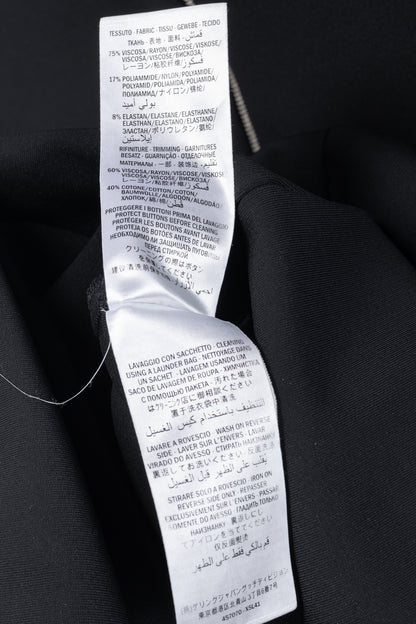 TESSUTO - FABRIC - TISSU - GEWEBE - TECIDO
ТКАНЬ - 表地 - 面料 - قماش
75% VISCOSA/RAYON/VISCOSE/VISKOSE/
VISCOSE/VISCOSE/ВИСКОЗА/
レーヨン/粘胶纤维/فسكوز
17% POLIAMMIDE/NYLON/POLYAMIDE/
POLYAMID/POLIAMIDA/POLIAMIDA/
ПОЛИАМИД/ナイロン/锦纶/
بولي أميد
8% ELASTAN/ELASTANE/ELASTHANNE/
ELASTHAN/ELASTANO/ELASTANO/
ЭЛАСТАН/ポリウレタン/氨纶/
إيلاستين
RIFINITURE - TRIMMING - GARNITURES
BESATZ - GUARNIÇÃO - ОТДЕЛОЧНЫЕ
МАТЕРИАЛЫ - 一部 - 装饰边 - تقليم
60% VISCOSA/RAYON/VISCOSE/
VISCOSE/VISCOSE/ВИСКОЗА/
レーヨン/粘胶纤维/فسكوز
40% COTONE/COTTON/COTON/
BAUMWOLLE/ALGODON/ALGODAO/
ХЛОПОК/綿/棉/قطن
PROTEGGERE I BOTTONI PRIMA DEL LAVAGGIO
PROTECT BUTTONS BEFORE CLEANING
PROTÉGER LES BOUTONS AVANT LAVAGE
PROTEJA OS BOTÕES ANTES DE LAVAR
НЕОБХОДИМО ЗАЩИЩАТЬ ПУГОВИЦЫ
ПЕРЕД СТИРКОЙ
クリーニングの際はボタン
を保護してください
建议清洗前保护
LAVAGGIO CON SACCHETTO - CLEANING
USING A LAUNDER BAG - NETTOYAGE DANS
UN SACHET - LAVAGEM USANDO UM
SACO DE LAVAGEM DE ROUPA - ХИМЧИСТКА
С ПОМОЩЬЮ ПАКЕТА - 汚れた場合
はクリーニング店に御相談ください
置于洗衣袋中清洗
التنظيف باستخدام كيس الغسيل
LAVARE A ROVESCIO - WASH ON REVERSE
SIDE - LAVER SUR L'ENVERS - LAVAR
VIRADO DO AVESSO - СТИРАТЬ НАИЗНАНКУ
裏返してお洗いください - 反面洗涤
يقلب على الظهر قبل الغسيل
STIRARE SOLO A ROVESCIO - IRON ON
REVERSE SIDE ONLY - REPASSER
EXCLUSIVEMENT SUR L'ENVERS - PASSAR
SOMENTE DO AVESSO - ГЛАДИТЬ ТОЛЬКО
НАИЗНАНКУ - 裏返しにし
てアイロンをあててください
仅反面熨烫
قم بالكي فقط على الظهر
(株)ケリングジャパングッチディビジョン
東京都港区北青山3丁目6番1号
457070 - X5L41